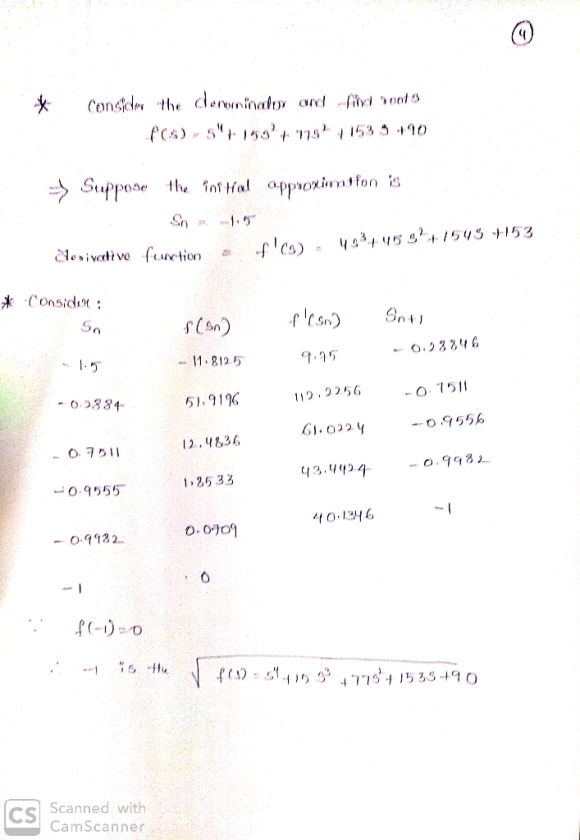 4
* Consider the denominator and find roots
f(s) = s⁴ + 15s² + 77s² + 153 s + 90
⇒ Suppose the initial approximation is
Sn = -1.5
Derivative function = f'(s) = 4s³ + 45s² + 154s + 153
* Consider :
Sn f(Sn) f'(Sn) Sn+1
-1.5 -11.8125 9.75 -0.28846
-0.2884 51.9196 112.2256 -0.7511
-0.7511 12.4836 61.0224 -0.9556
-0.9555 1.8533 43.4424 -0.9982
-0.9982 0.0709 40.1346 -1
-1 0
∵ f(-1)=0
∴ -1 is the √ f(s) = s⁴ + 15 s³ + 77s² + 153s + 90
CS Scanned with
CamScanner